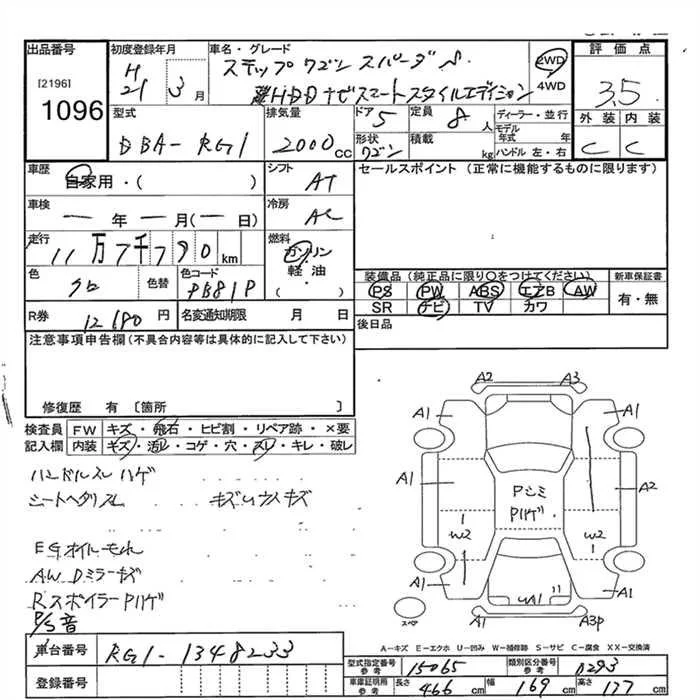 出品番号
[2196]
1096
初度登録年月
H
21 3 月
車名・グレード
ステップワゴン スパーダ S
HDDナビスマートスタイルエディション
2WD
4WD
評価点
3.5
外装 内装
C C
型式
DBA-RG1
排気量
2000 cc
ドア
5
定員
8 人
形状
ワゴン
積載
kg
ディーラー・並行
モデル
年式 年
ハンドル 左・右
車歴
自家用・( )
シフト
AT
セールスポイント (正常に機能するものに限ります)
車検
― 年 ― 月(― 日)
冷房
AC
走行
11万7千790 km
燃料
ガソリン
軽油
( )
色
クロ
色替
色コード
PB81P
装備品(純正品に限り○をつけてください)
PS PW ABS エアB AW
SR ナビ TV カワ
新車保証書
有・無
R券
12680 円
名変通知期限 月 日
後日品
注意事項申告欄(不具合内容等は具体的に記入して下さい)
修復歴 有 〔箇所 〕
検査員
記入欄
FW キズ・飛石・ヒビ割・リペア跡・×要
内装 キズ・汚レ・コゲ・穴・スレ・キレ・破レ
ハンドルスレ ハゲ
シートヘタリスレ
EGオイルモれ
AW Dミラーキズ
Rスポイラー Pハゲ
P/S音
A2 A3
A1 A1
A1 A2
Pシミ
Pハゲ
W2 W2
A1 A1
UA1
スペア
A1 A3P
A-キズ E-エクホ U-凹み W-補修跡 S-サビ C-腐食 XX-交換済
車台番号
RG1-1348233
登録番号
型式指定番号
参考
15065
類別区分番号
参考
0293
車庫証明用
参考
長さ 466 cm 幅 169 cm 高さ 177 cm